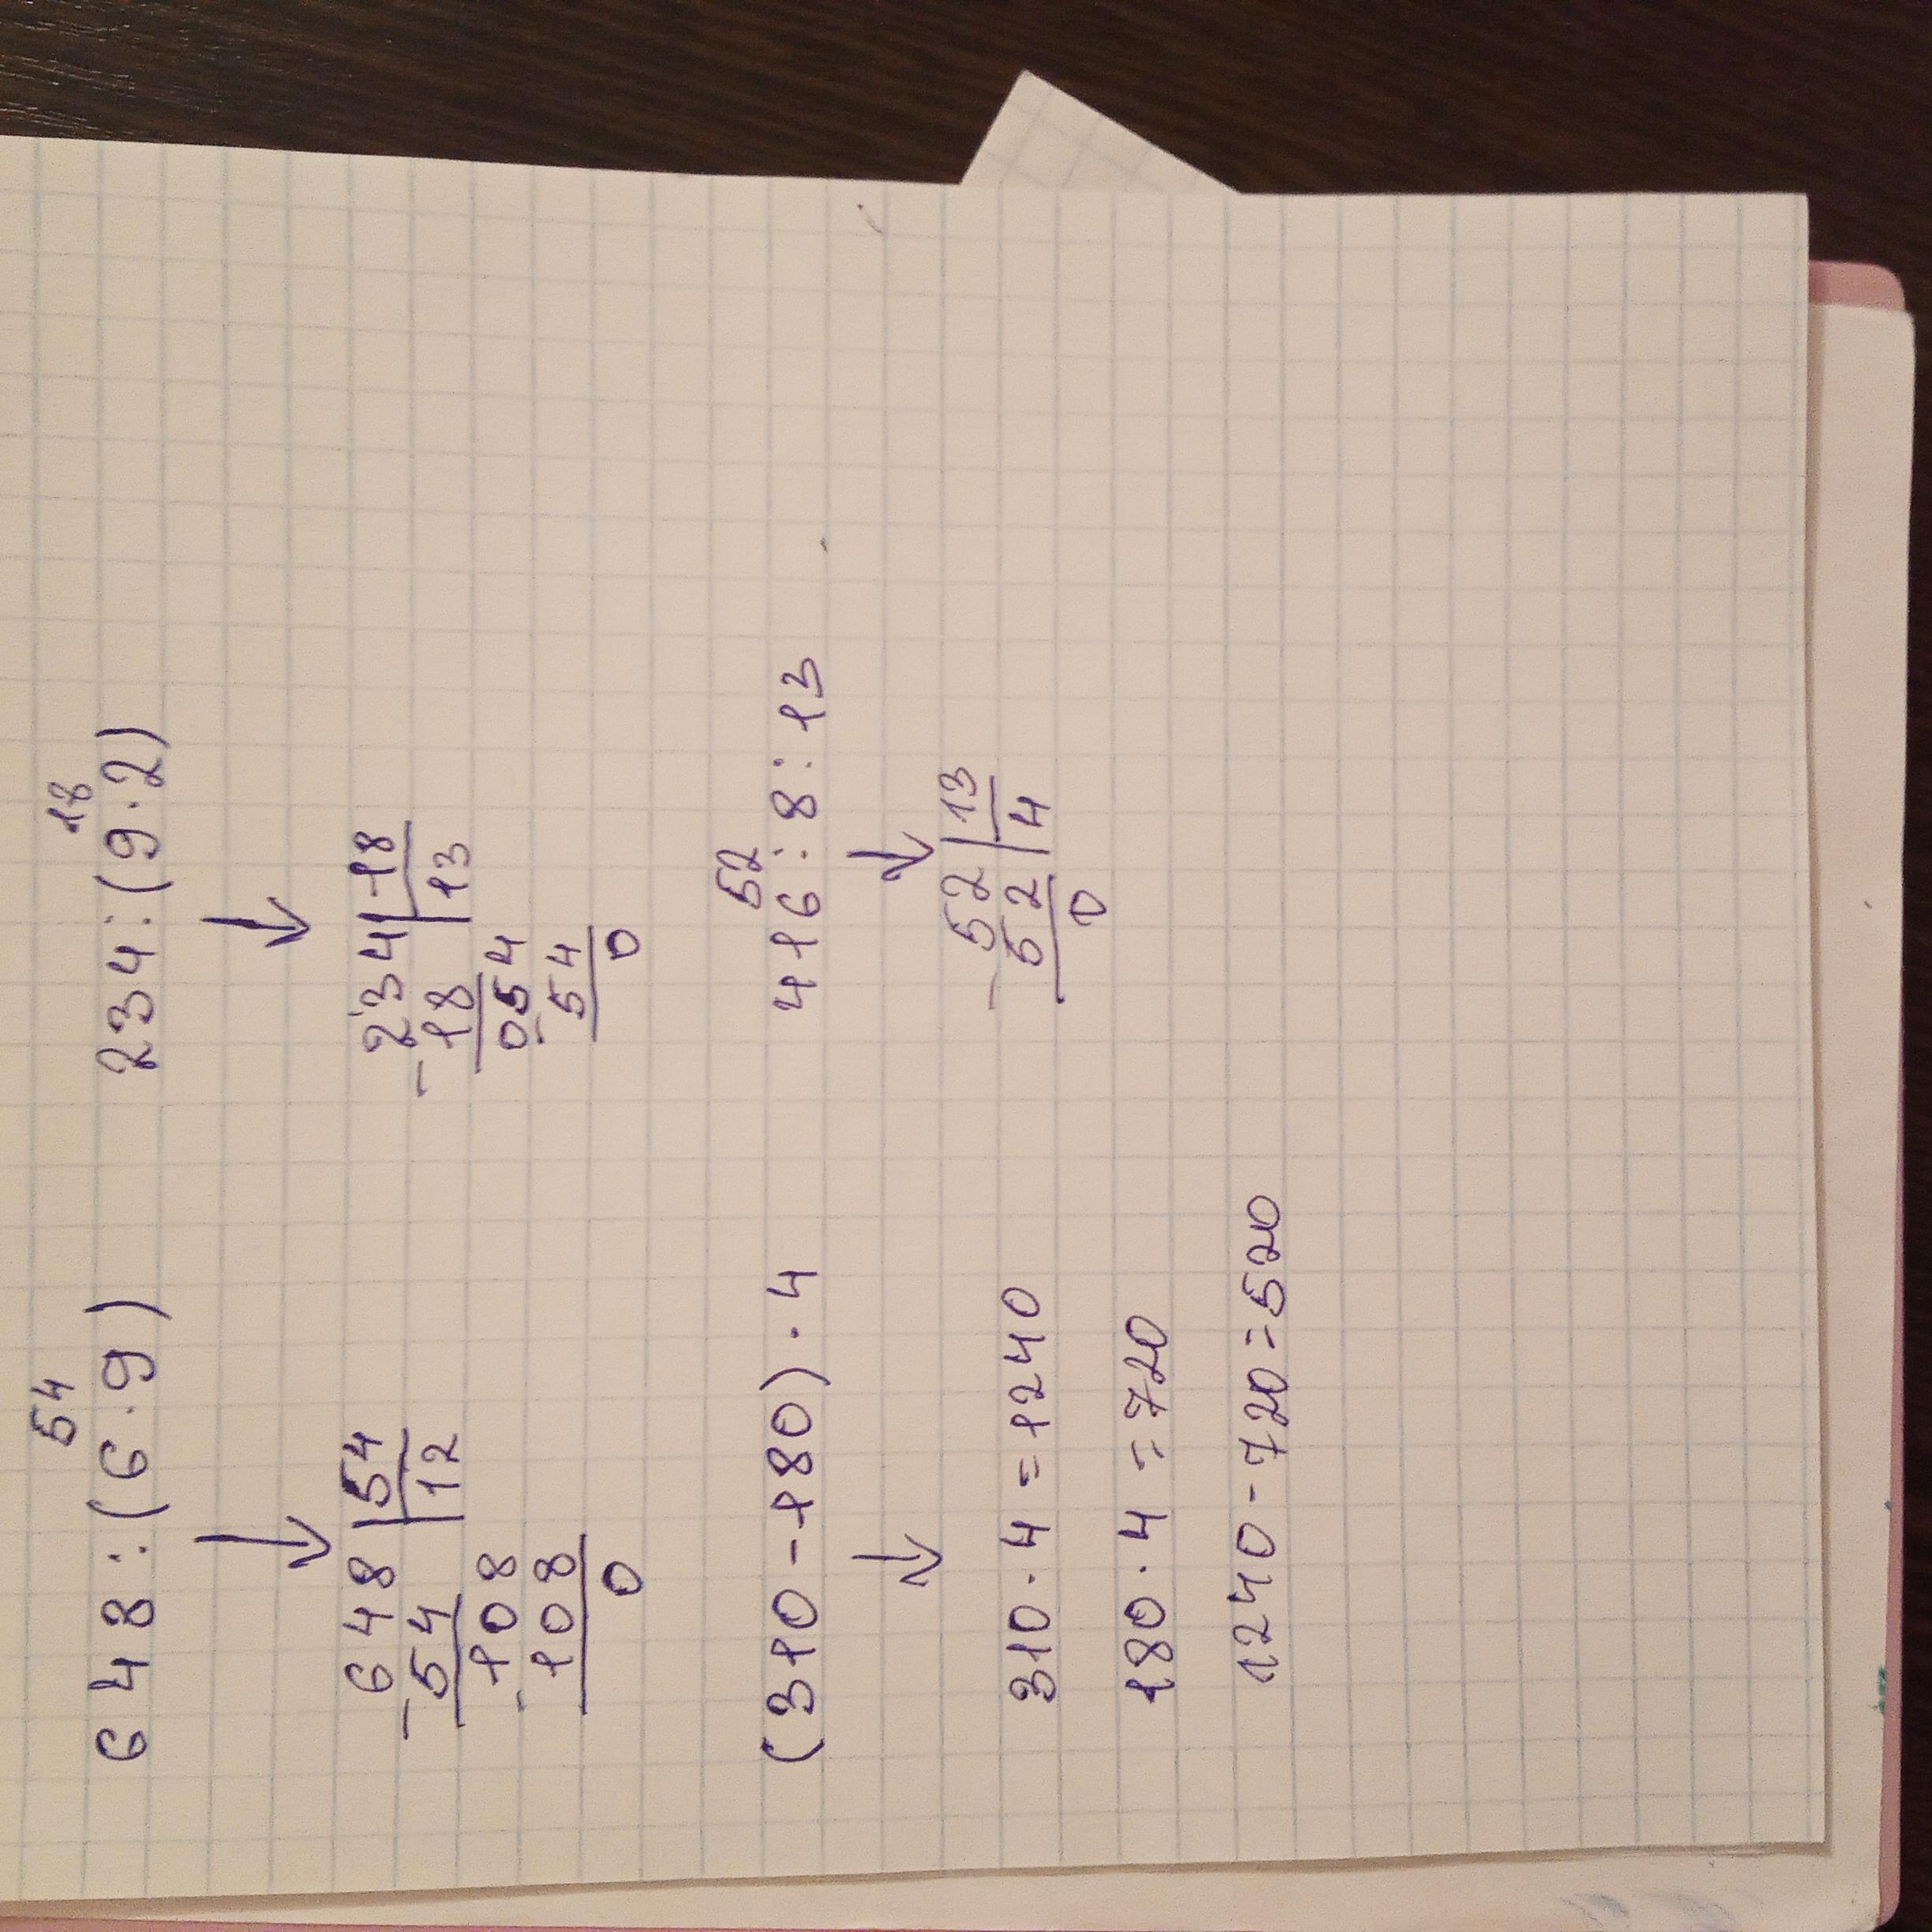 54 18
648 : (6 · 9) 234 : (9 · 2)
↓ ↓
648 | 54 234 | 18
- 54 | 12 - 18 | 13
- 108 - 054
108 54
0 0
52
(310 - 180) · 4 416 : 8 : 13
↓ ↓
310 · 4 = 1240 - 52 | 13
52 | 4
180 · 4 = 720 0
1240 - 720 = 520